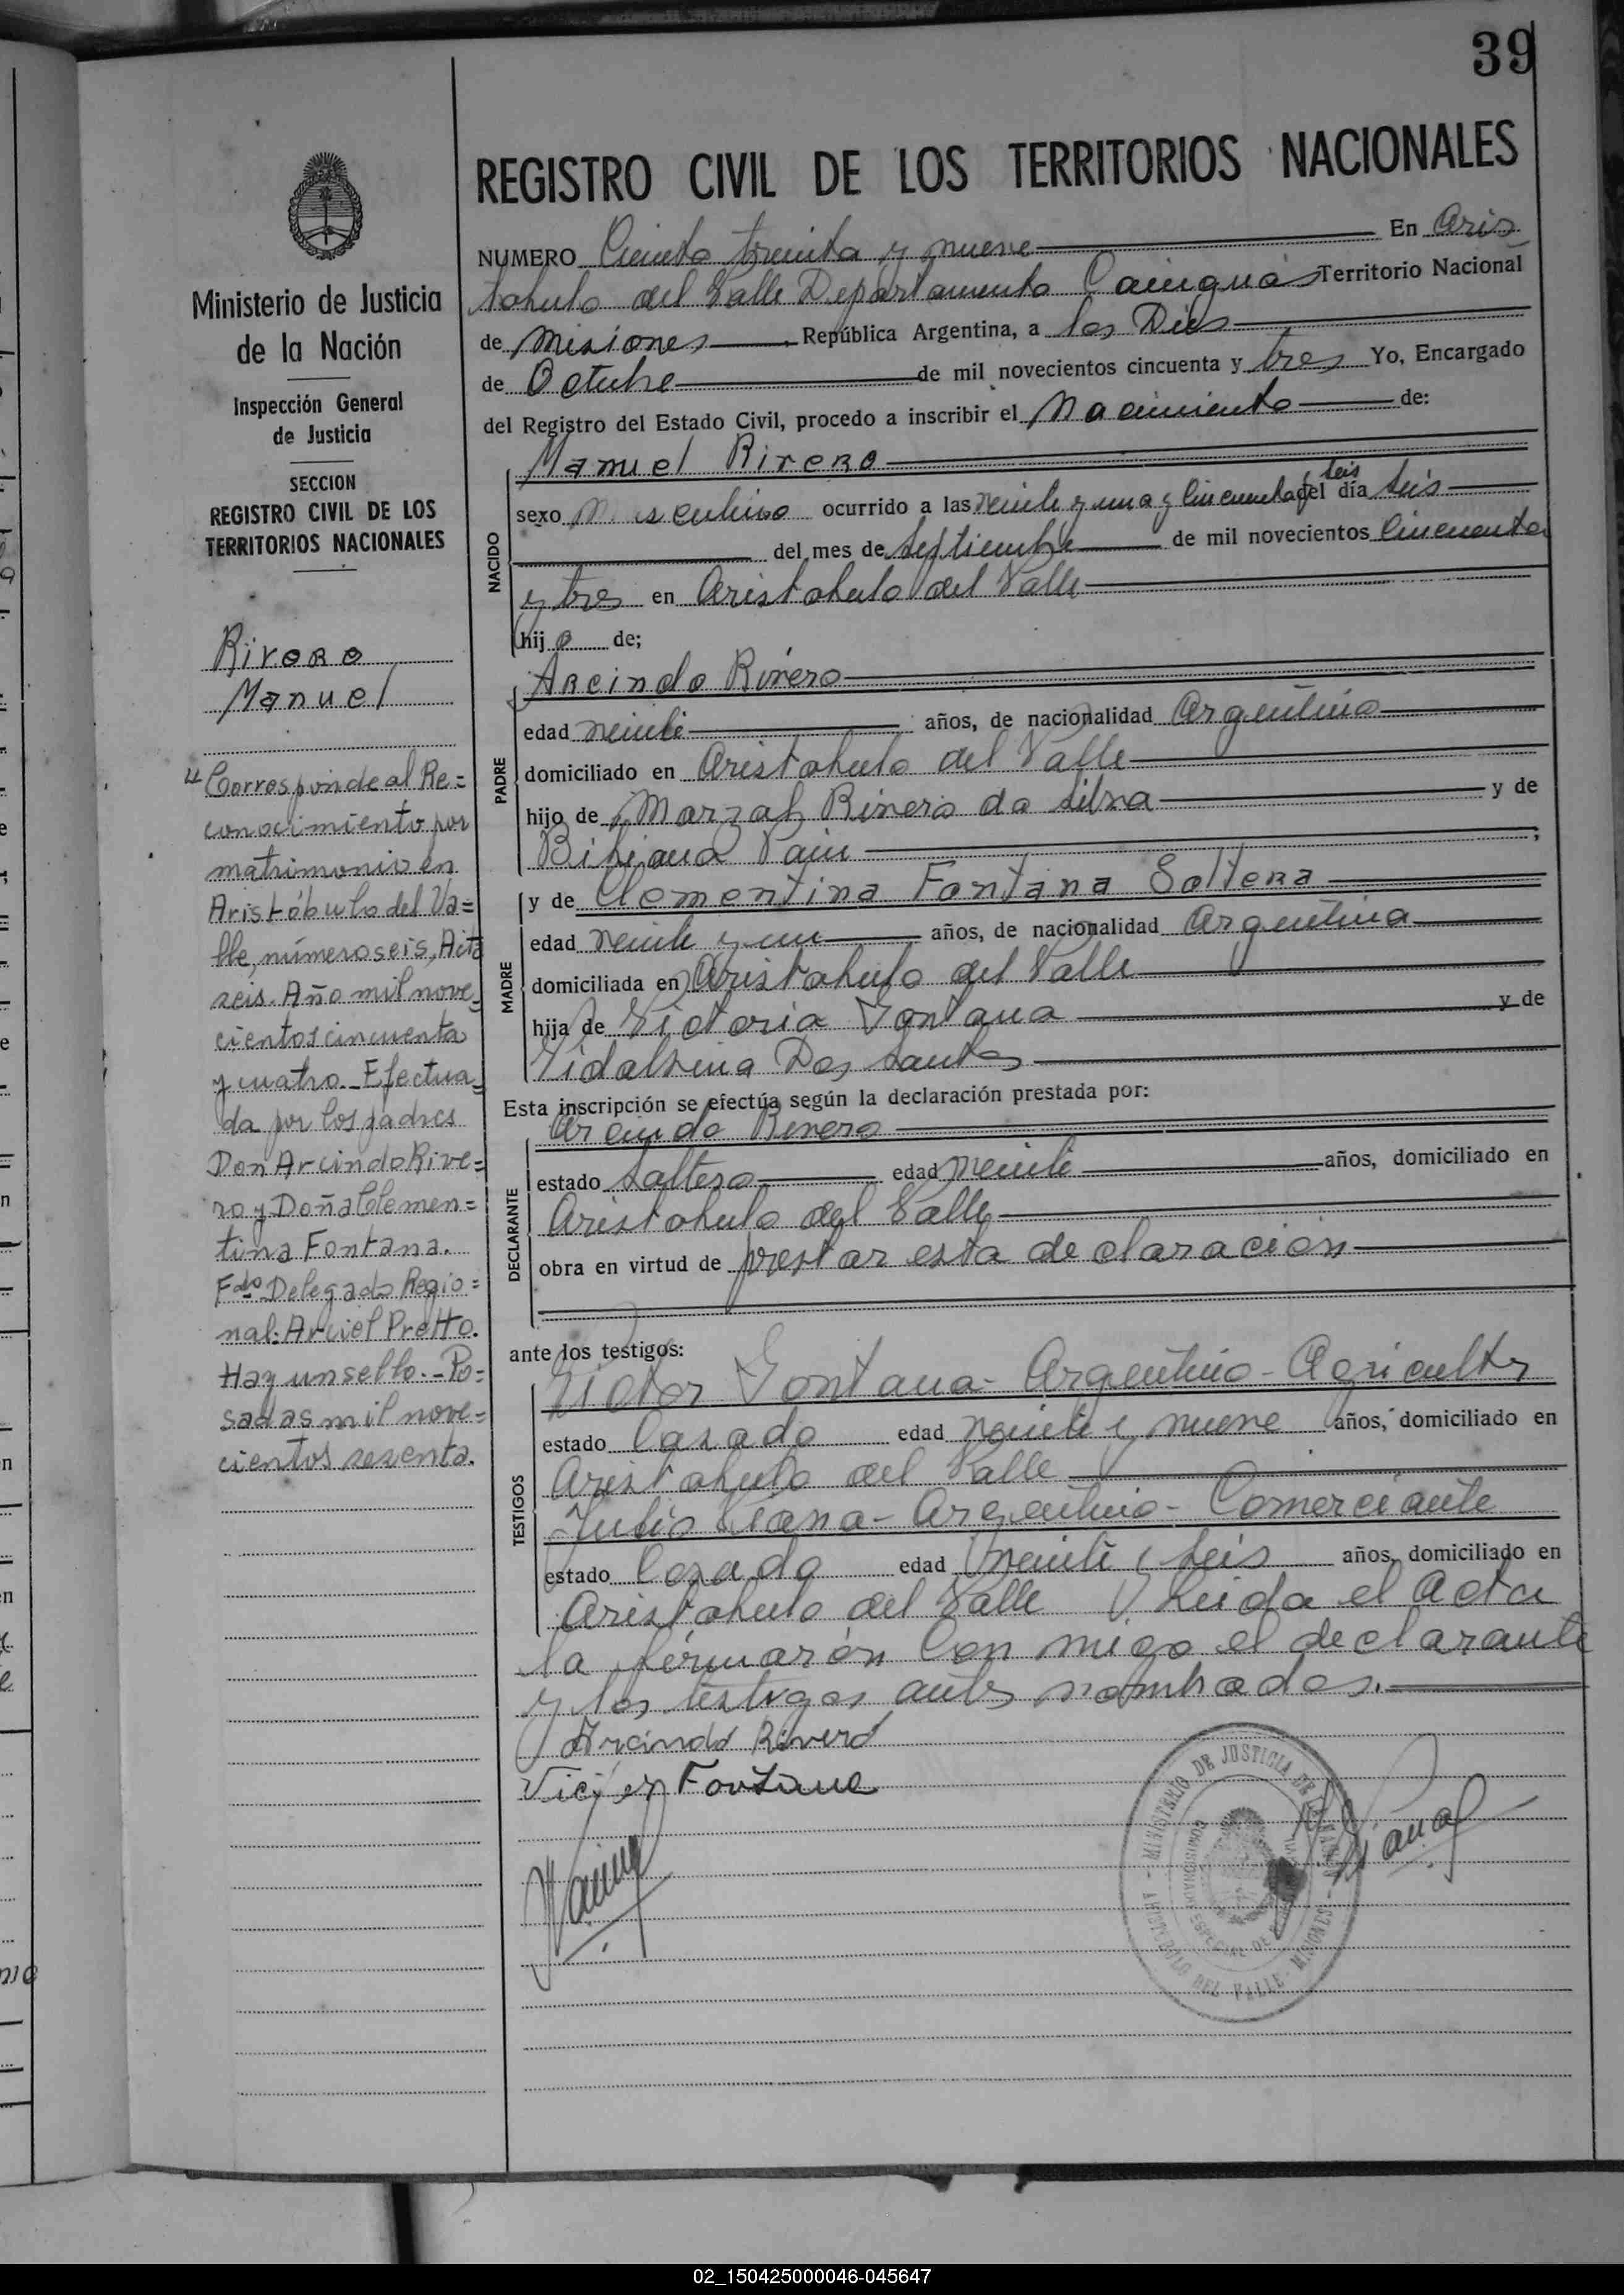 39
REGISTRO CIVIL DE LOS TERRITORIOS NACIONALES
NUMERO Ciento treinta y nueve En Aris
tobulo del Valle Departamento Cainguás Territorio Nacional
de Misiones República Argentina, a los Dies
de Octubre de mil novecientos cincuenta y tres Yo, Encargado
del Registro del Estado Civil, procedo a inscribir el Nacimiento de:
Manuel Rivero
NACIDO
sexo Masculino ocurrido a las veinte y una y cincuenta y seis del día seis
del mes de Septiembre de mil novecientos cincuenta
y tres en Aristobulo del Valle
hij o de;
PADRE
Arcindo Rivero
edad veinte años, de nacionalidad Argentino
domiciliado en Aristobulo del Valle
hijo de Marzal Rivero da Silva y de
Bibiana Pain ;
MADRE
y de Clementina Fontana Soltera
edad veinte y un años, de nacionalidad Argentina
domiciliada en Aristobulo del Valle
hija de Victoria Fontana y de
Vidalvina Dos Santos
Esta inscripción se efectúa según la declaración prestada por:
DECLARANTE
Arcindo Rivero
estado Soltero edad veinte años, domiciliado en
Aristobulo del Valle
obra en virtud de prestar esta declaración
ante los testigos:
TESTIGOS
Victor Fontana - Argentino - Agricultor
estado Casado edad veinte y nueve años, domiciliado en
Aristobulo del Valle
Julio Viana - Argentino - Comerciante
estado Casado edad veinte y seis años, domiciliado en
Aristobulo del Valle Leida el Acta
la firmarón con migo el declarante
y los testigos antes nombrados.
Arcindo Rivero
Victor Fontana
MINISTERIO DE JUSTICIA DE LA NACION
ARISTOBULO DEL VALLE - MISIONES
Ministerio de Justicia
de la Nación
Inspección General
de Justicia
SECCION
REGISTRO CIVIL DE LOS
TERRITORIOS NACIONALES
Rivero
Manuel
"Corresponde al Re=
conocimiento por
matrimonio en
Aristóbulo del Va=
lle, número seis, Acta
seis. Año mil nove=
cientos cincuenta
y cuatro.- Efectua=
da por los padres
Don Arcindo Rive=
ro y Doña Clemen=
tina Fontana.
Fdo Delegado Regio=
nal: Arciel Pretto.
Hay un sello.- Po=
sadas mil nove=
cientos sesenta.
02_150425000046-045647